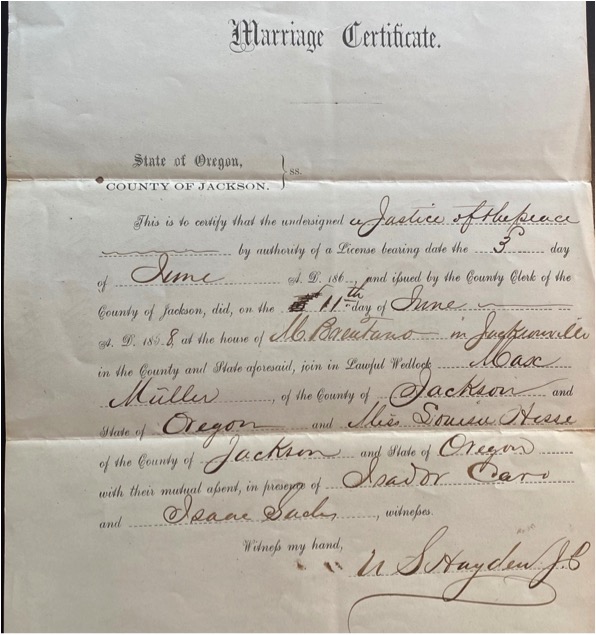 Marriage Certificate.
State of Oregon,
COUNTY OF JACKSON.
ss.
This is to certify that the undersigned a Justice of the peace
by authority of a License bearing date the 3 day
of June A. D. 186 , and issued by the County Clerk of the
County of Jackson, did, on the 11th day of June
A. D. 18 8, at the house of M. Brentano in Jacksonville
in the County and State aforesaid, join in Lawful Wedlock Max
Müller , of the County of Jackson and
State of Oregon and Miss Louisa Hesse
of the County of Jackson and State of Oregon
with their mutual assent, in presence of Isador Caro
and Isaac Sachs , witnesses.
Witness my hand,
U S Hayden J. P